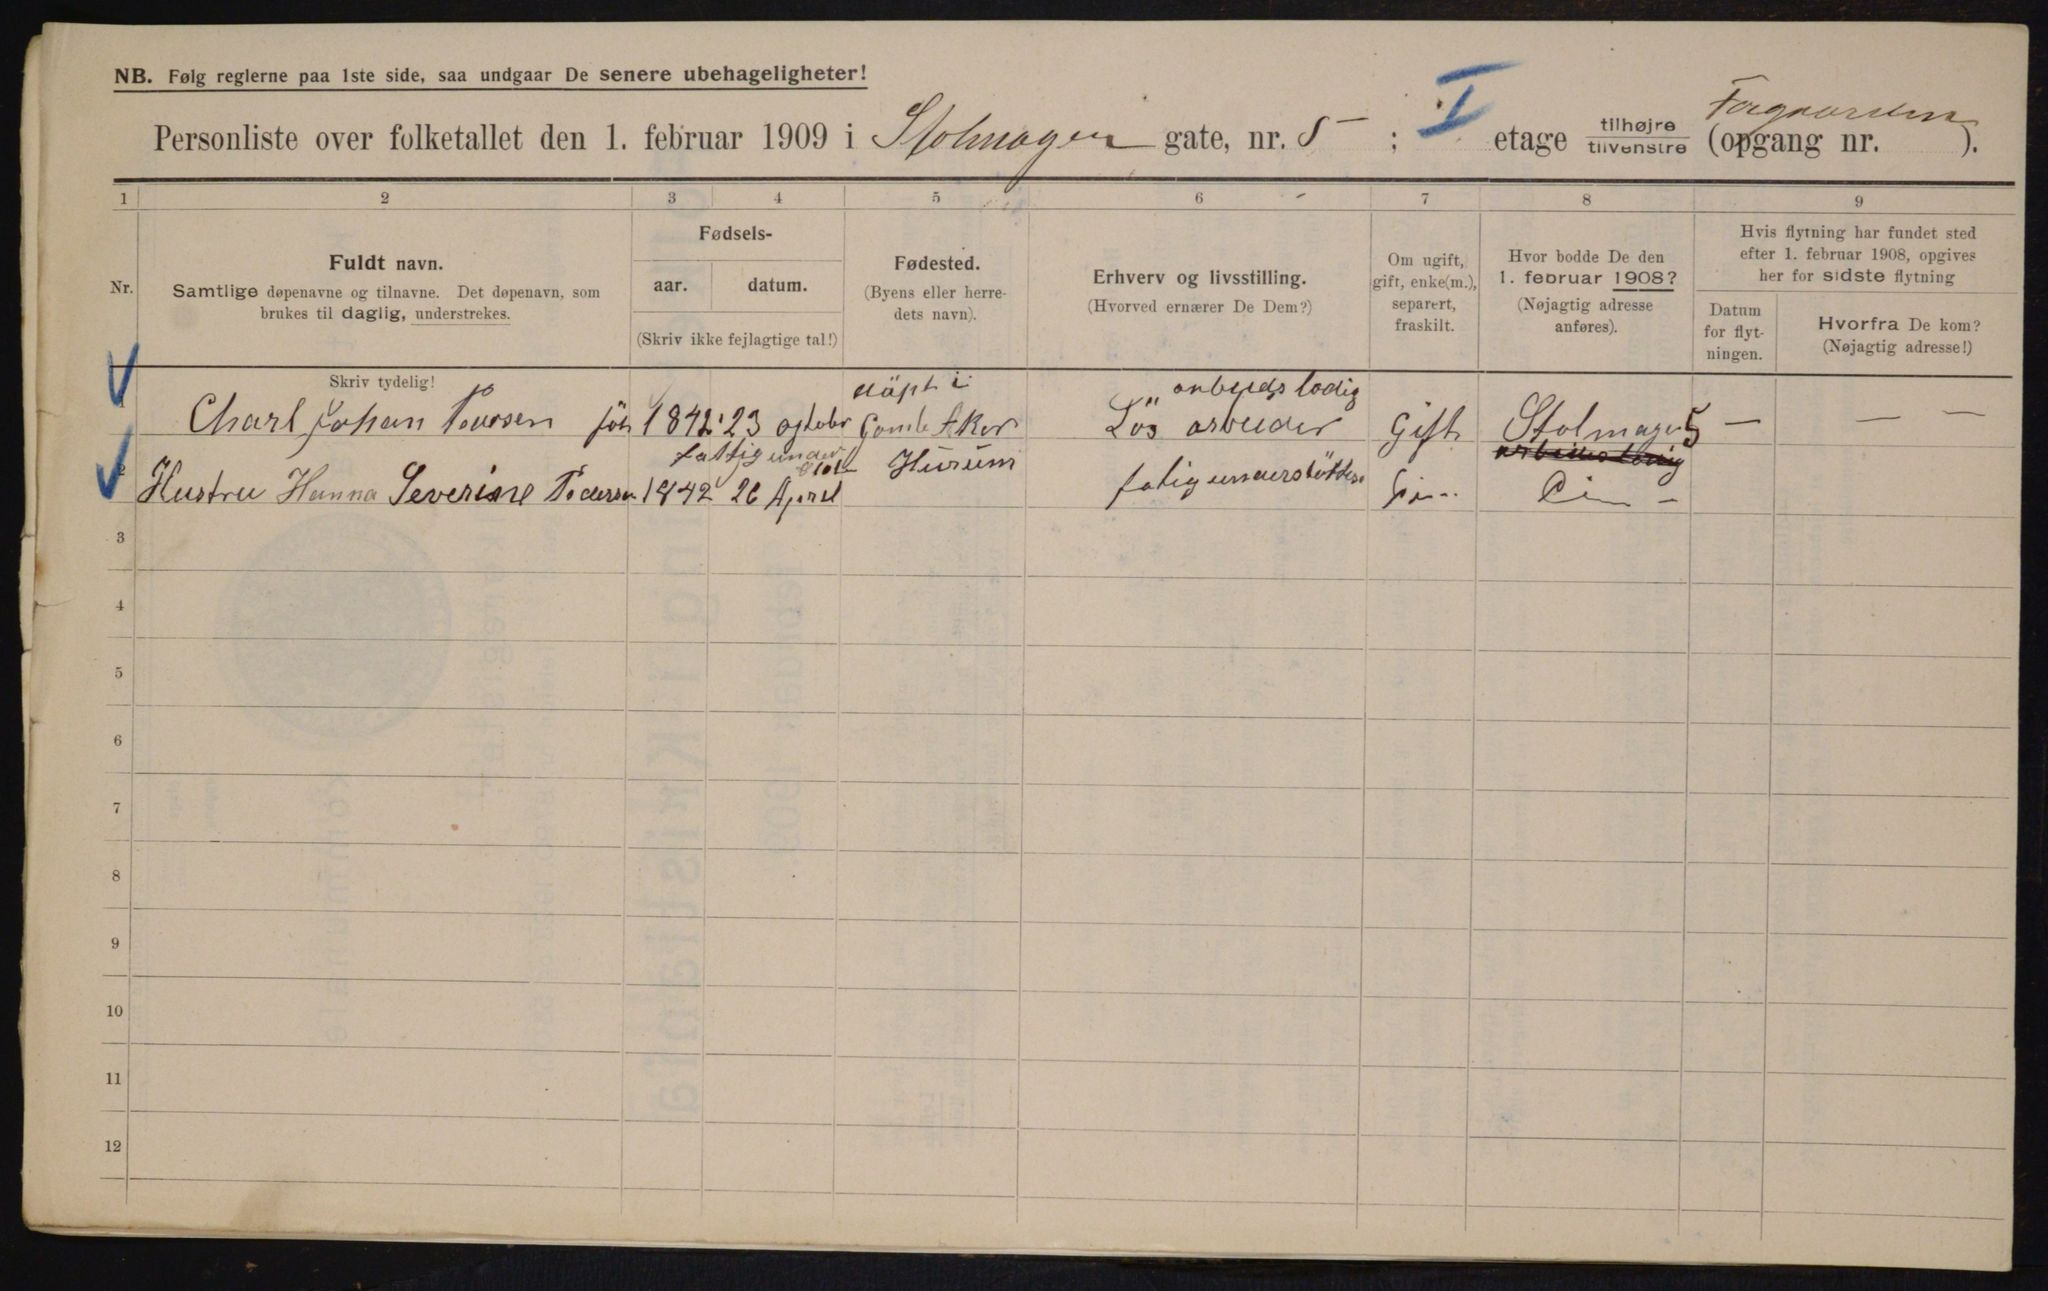 NB. Følg reglerne paa 1ste side, saa undgaar De senere ubehageligheter!
Personliste over folketallet den 1. februar 1909 i Stolmager gate, nr. 5 ; I etage tilhøjre tilvenstre (opgang nr. ).
1 2 3 4 5 6 7 8 9
Nr.
Fuldt navn.
Samtlige døpenavne og tilnavne. Det døpenavn, som
brukes til daglig, understrekes.
Skriv tydelig!
Fødsels-
aar. datum.
(Skriv ikke fejlagtige tal!)
Fødested.
(Byens eller herre-
dets navn).
Erhverv og livsstilling.
(Hvorved ernærer De Dem?)
Om ugift,
gift, enke(m.),
separert,
fraskilt.
Hvor bodde De den
1. februar 1908?
(Nøjagtig adresse
anføres).
Hvis flytning har fundet sted
efter 1. februar 1908, opgives
her for sidste flytning
Datum
for flyt-
ningen.
Hvorfra De kom?
(Nøjagtig adresse!)
döpt i arbeidslodig
1 Charl Johan föt 1842 23 oktober Gamle Aker Lös arbeider Gift Stolmager 5 — — —
fattigunder
2 Hustru Hanna Severine Pedersen 1842 26 April Hurum fatigunderstöttelse
3
4
5
6
7
8
9
10
11
12